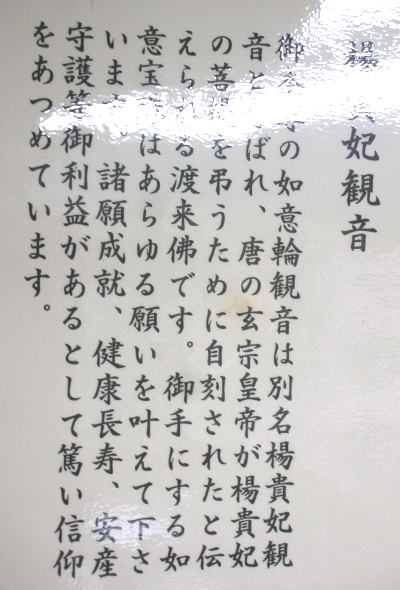 楊貴妃観音
御本尊の如意輪観音は別名楊貴妃観
音と呼ばれ、唐の玄宗皇帝が楊貴妃
の菩提を弔うために自刻されたと伝
えられる渡来佛です。御手にする如
意宝珠はあらゆる願いを叶えて下さ
います。諸願成就、健康長寿、安産
守護等御利益があるとして篤い信仰
をあつめています。